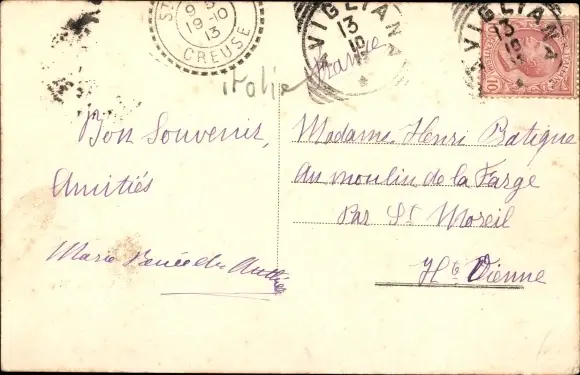 ST
19 10
13
CREUSE
AVIGLIANA
13
AVIGLIANA
13
10
italie
france
Bon Souvenir,
Amitiés
Marie
Madame Henri Batigne
Au moulin de la Farge
Par St Moreil
Hte Vienne